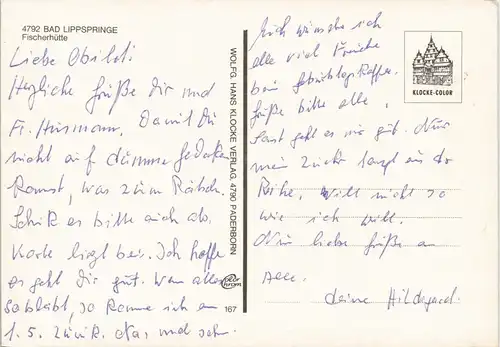 4792 BAD LIPPSPRINGE
Fischerhütte
Liebe Obilot.
Herzliche Grüße dir und
Fr. Husmann. Damit du
nicht auf dumme Gedanken
kommst, was zum Rätseln.
Schick es bitte auch ab.
Karte liegt bei. Ich hoffe
es geht dir gut. Wenn alles
so bleibt, so komme ich am
1.5. zurück. Na, und sehn
WOLFG. HANS KLOCKE VERLAG, 4790 PADERBORN
color
chrom
167
Auch wünsche ich
alle viel Freude
beim Geburtstags Kaffee.
Grüße bitte alle,
Sonst geht es mir gut. Nur
mein Zucker tanzt aus der
Reihe, will nicht so
wie ich will.
Nun liebe Grüße an
Alle.
deine Hildegard.
KLOCKE-COLOR